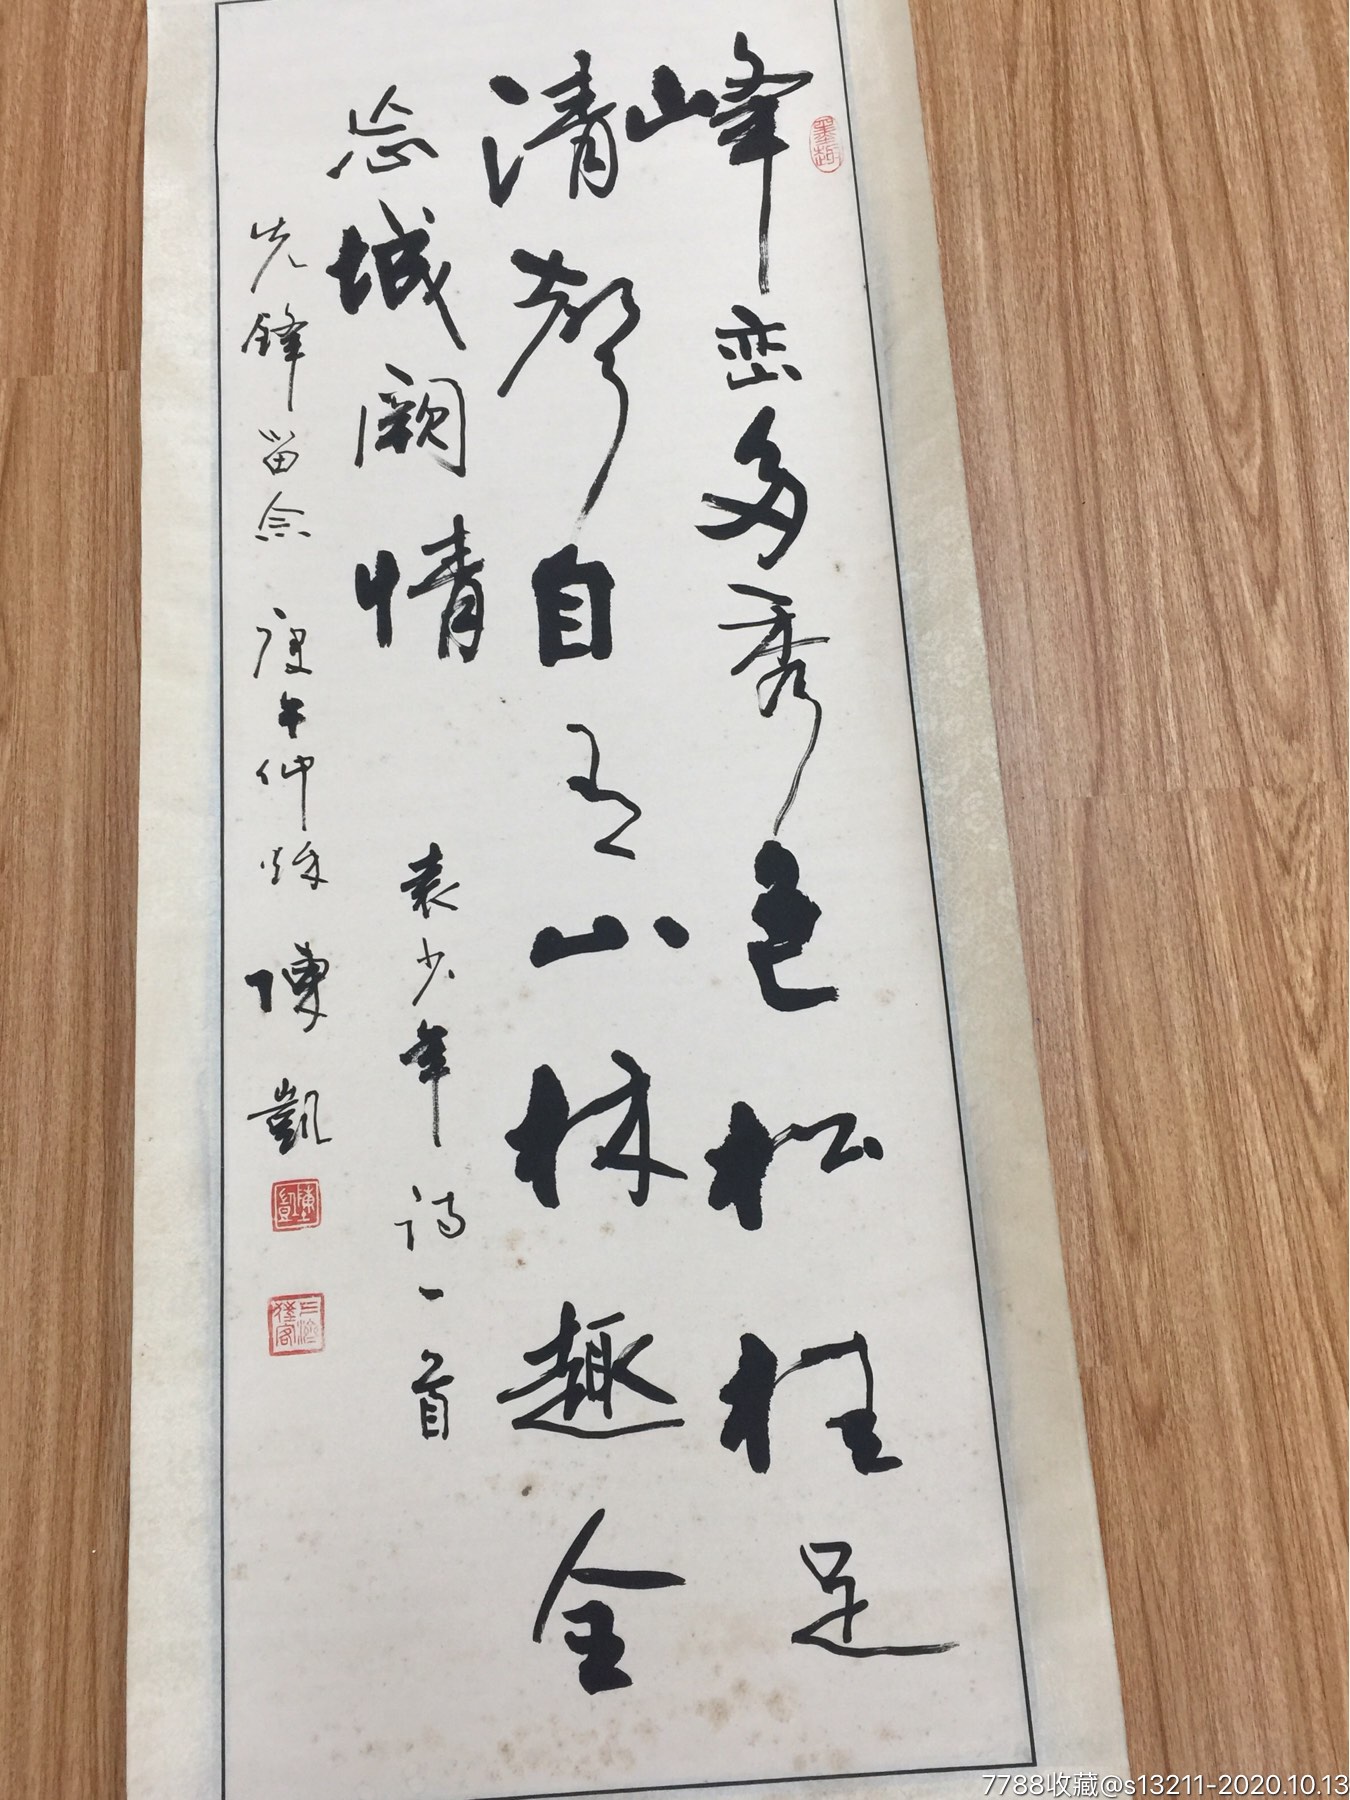 峰峦多秀色松桂足
清聲自有山林趣全
忘城闕情 袁少年诗一首
先鋒留念 庚午仲秌 陳凱
陳凱
7788收藏@s13211-2020.10.13